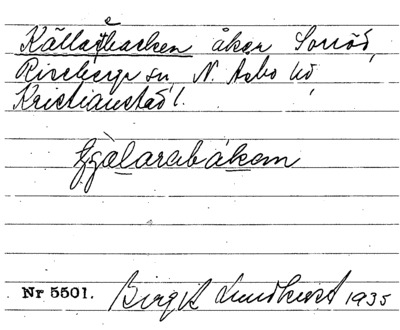 Källarebacken åker Sorröd,
Riseberga sn, N. Åsbo hd
Kristianstad l.
Nr 5501. Birgit Lundkvist 1935